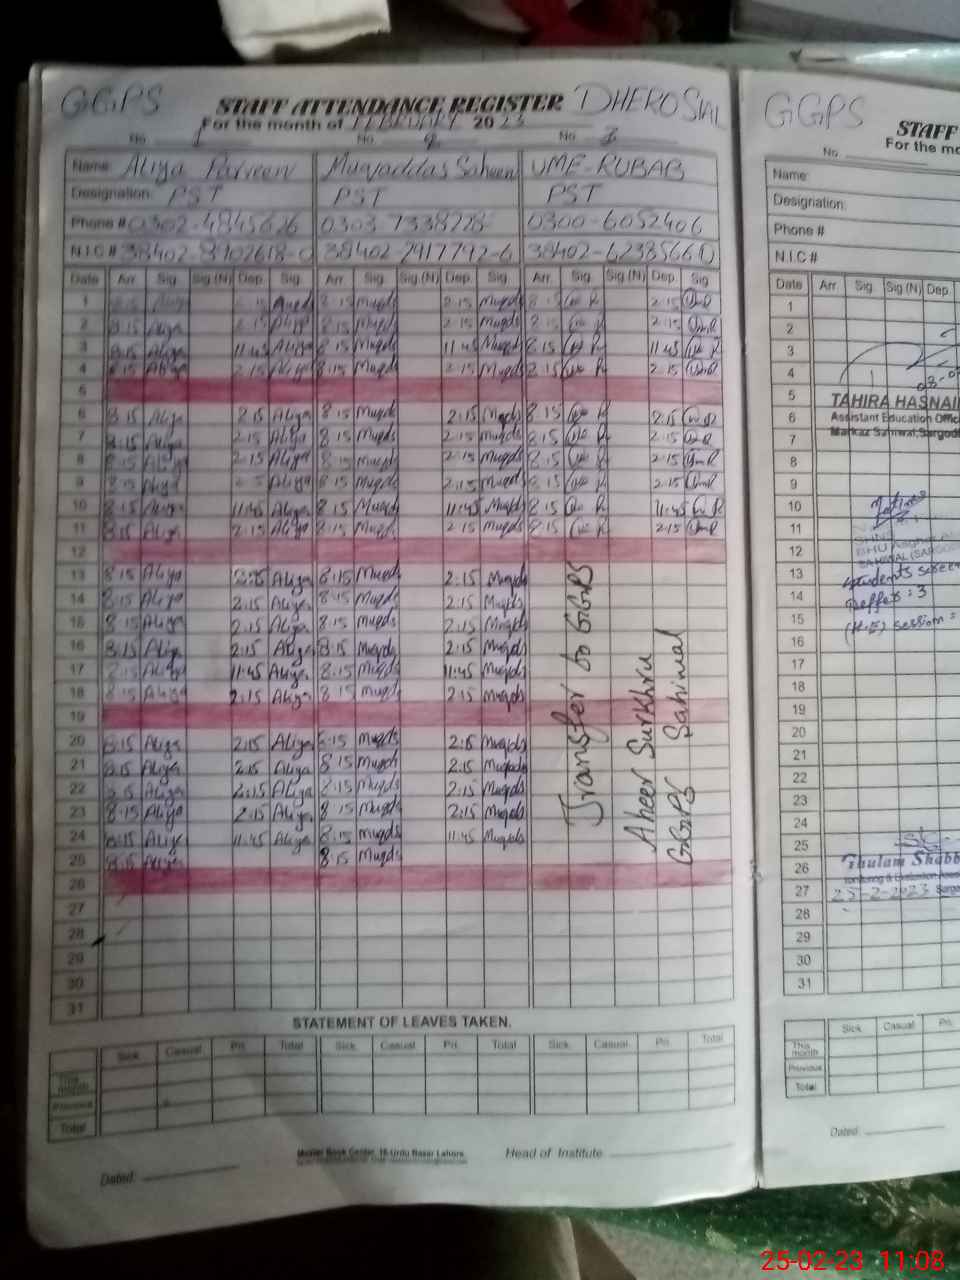 GGPS STAFF ATTENDANCE REGISTER DHERO SIAL
For the month of FEBRUARY 2023
No. 1 No. 2 No. 3
Name: Aliya Parveen Muqaddas Saheen UME-RUBAB
Designation: PST PST PST
Phone # 0302-4845626 0303 7338228 0300-6052406
N.I.C # 38402-8902618-0 38402-7917792-6 38402-6238566
Date Arr. Sig. Sig (N) Dep. Sig. Arr. Sig. Sig.(N) Dep. Sig. Arr. Sig. Sig (N) Dep. Sig
1 8:15 2:15 Muqds 8:15 2:15
2 8:15 Aliya 2:15 Aliya 8:15 Muqds 2:15 Muqds 8:15 2:15
3 8:15 Aliya 11:45 Aliya 8:15 Muqds 11:45 Muqds 8:15 11:45
4 8:15 Aliya 2:15 Aliya 8:15 Muqds 2:15 Muqds 8:15 2:15
5
6 8:15 Aliya 2:15 Aliya 8:15 Muqds 2:15 Muqds 8:15 2:15
7 8:15 Aliya 2:15 Aliya 8:15 Muqds 2:15 Muqds 8:15 2:15
8 8:15 Aliya 2:15 Aliya 8:15 Muqds 2:15 Muqds 8:15 2:15
9 8:15 Aliya Aliya 8:15 Muqds 2:15 Muqds 8:15 2:15
10 8:15 Aliya 11:45 Aliya 8:15 Muqds 11:45 Muqds 8:15 11:45
11 8:15 Aliya 2:15 Aliya 8:15 Muqds 2:15 Muqds 8:15 2:15
12
13 8:15 Aliya 2:15 Aliya 8:15 Muqds 2:15 Muqds
14 8:15 Aliya 2:15 Aliya 8:15 Muqds 2:15 Muqds
15 8:15 Aliya 2:15 Aliya 8:15 Muqds 2:15 Muqds
16 8:15 Aliya 2:15 Aliya 8:15 Muqds 2:15 Muqds
17 8:15 Aliya 11:45 Aliya 8:15 Muqds 11:45 Muqds
18 8:15 Aliya 2:15 Aliya 8:15 Muqds 2:15 Muqds
19
20 8:15 Aliya 2:15 Aliya 8:15 Muqds 2:15 Muqds
21 8:15 Aliya 2:15 Aliya 8:15 Muqds 2:15 Muqds
22 8:15 Aliya 2:15 Aliya 8:15 Muqds 2:15 Muqds
23 8:15 Aliya 2:15 Aliya 8:15 Muqds 2:15 Muqds
24 8:15 Aliya 11:45 Aliya 8:15 Muqds 11:45 Muqds
25 8:15 Aliya 8:15 Muqds
26
27
28
29
30
31
Transfer to GGPS
Aheer Surkhru
GGPS Sahiwal
STATEMENT OF LEAVES TAKEN.
Sick Casual Pri. Total Sick. Casual Pri. Total Sick. Casual. Pri. Total
This month
Previous
Total
Dated. Master Book Center, 16-Urdu Bazar Lahore. Head of Institute.
GGPS STAFF
For the mo
No.
Name:
Designation:
Phone #
N.I.C #
Date Arr. Sig. Sig (N) Dep.
1
2
3
4
5 TAHIRA HASNAI
6 Assistant Education Office
7 Markaz Sahiwal, Sargod
8
9
10
11
12 BHU
13 students screen
14 Deffet: 3
15 (H.E) session =
16
17
18
19
20
21
22
23
24
25
26 Ghulam Shabb
27 25-2-2023
28
29
30
31
Sick Casual Pri.
This month
Previous
Total
Dated.
25-02-23 11:08